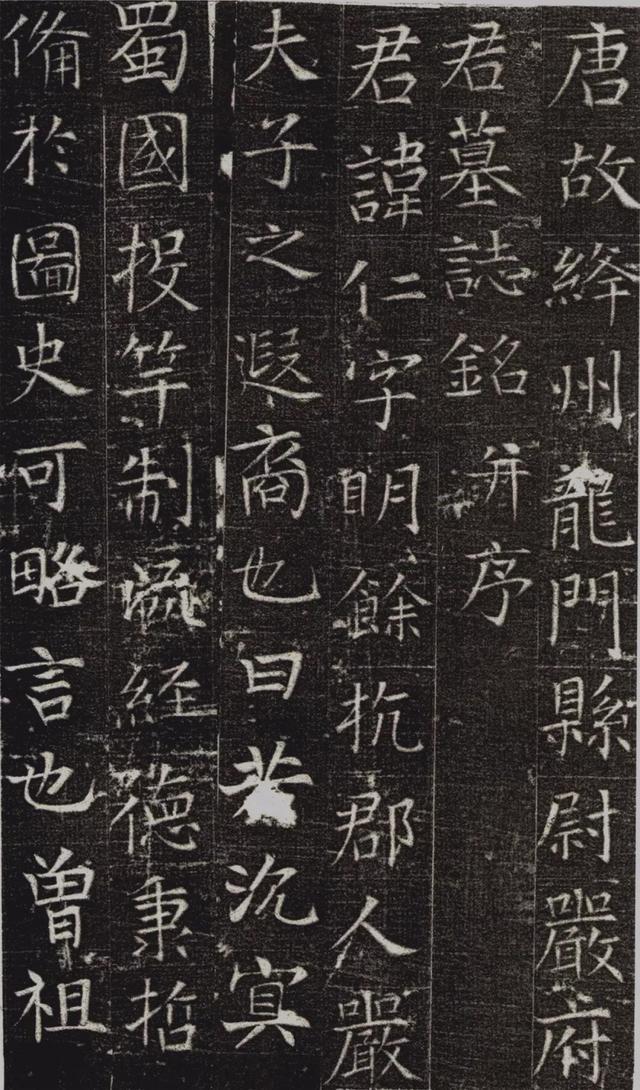 唐故絳州龍門縣尉嚴府
君墓誌銘并序
君諱仁字明餘杭郡人嚴
夫子之遐裔也曰若沉冥
蜀國投竿制経德秉哲
俻於圖史可略言也曽祖